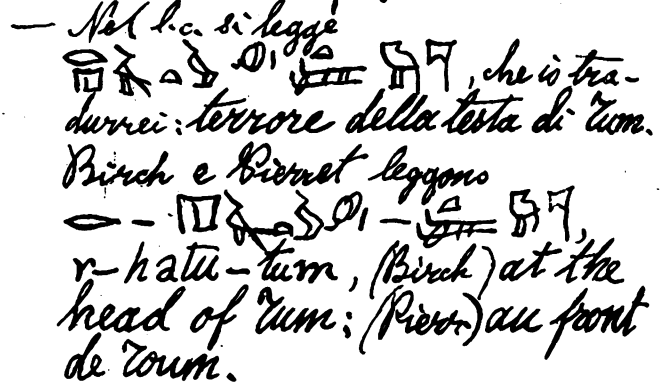 — Nel l.c. si legge
, che io tra-
durrei: terrore della testa di Tum.
Birch e Pierret leggono
— —
r-hatu-tum, (Birch) at the
head of Tum; (Pierr.) au front
de Toum.